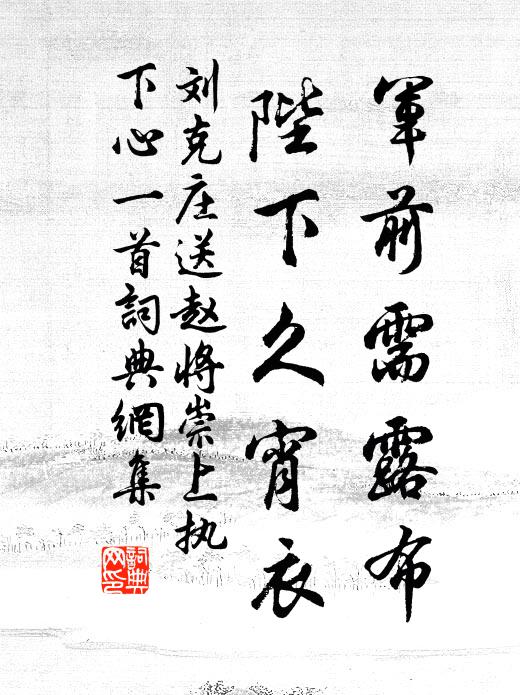 軍前需露布
陛下久宵衣
刘克庄送赵將崇上执
下心一首詞典網集
詞典网印